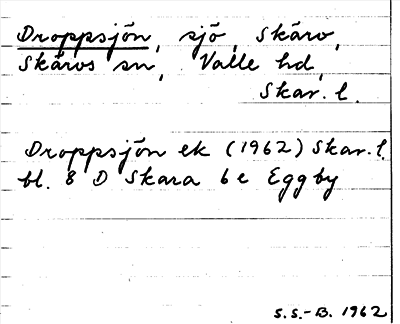 Droppsjön, sjö, Skärv,
Skärvs sn, Valle hd,
Skar. l.
Droppsjön ek (1962) Skar. l.
bl. 8 D Skara 6 e Eggby
S.S.-B. 1962